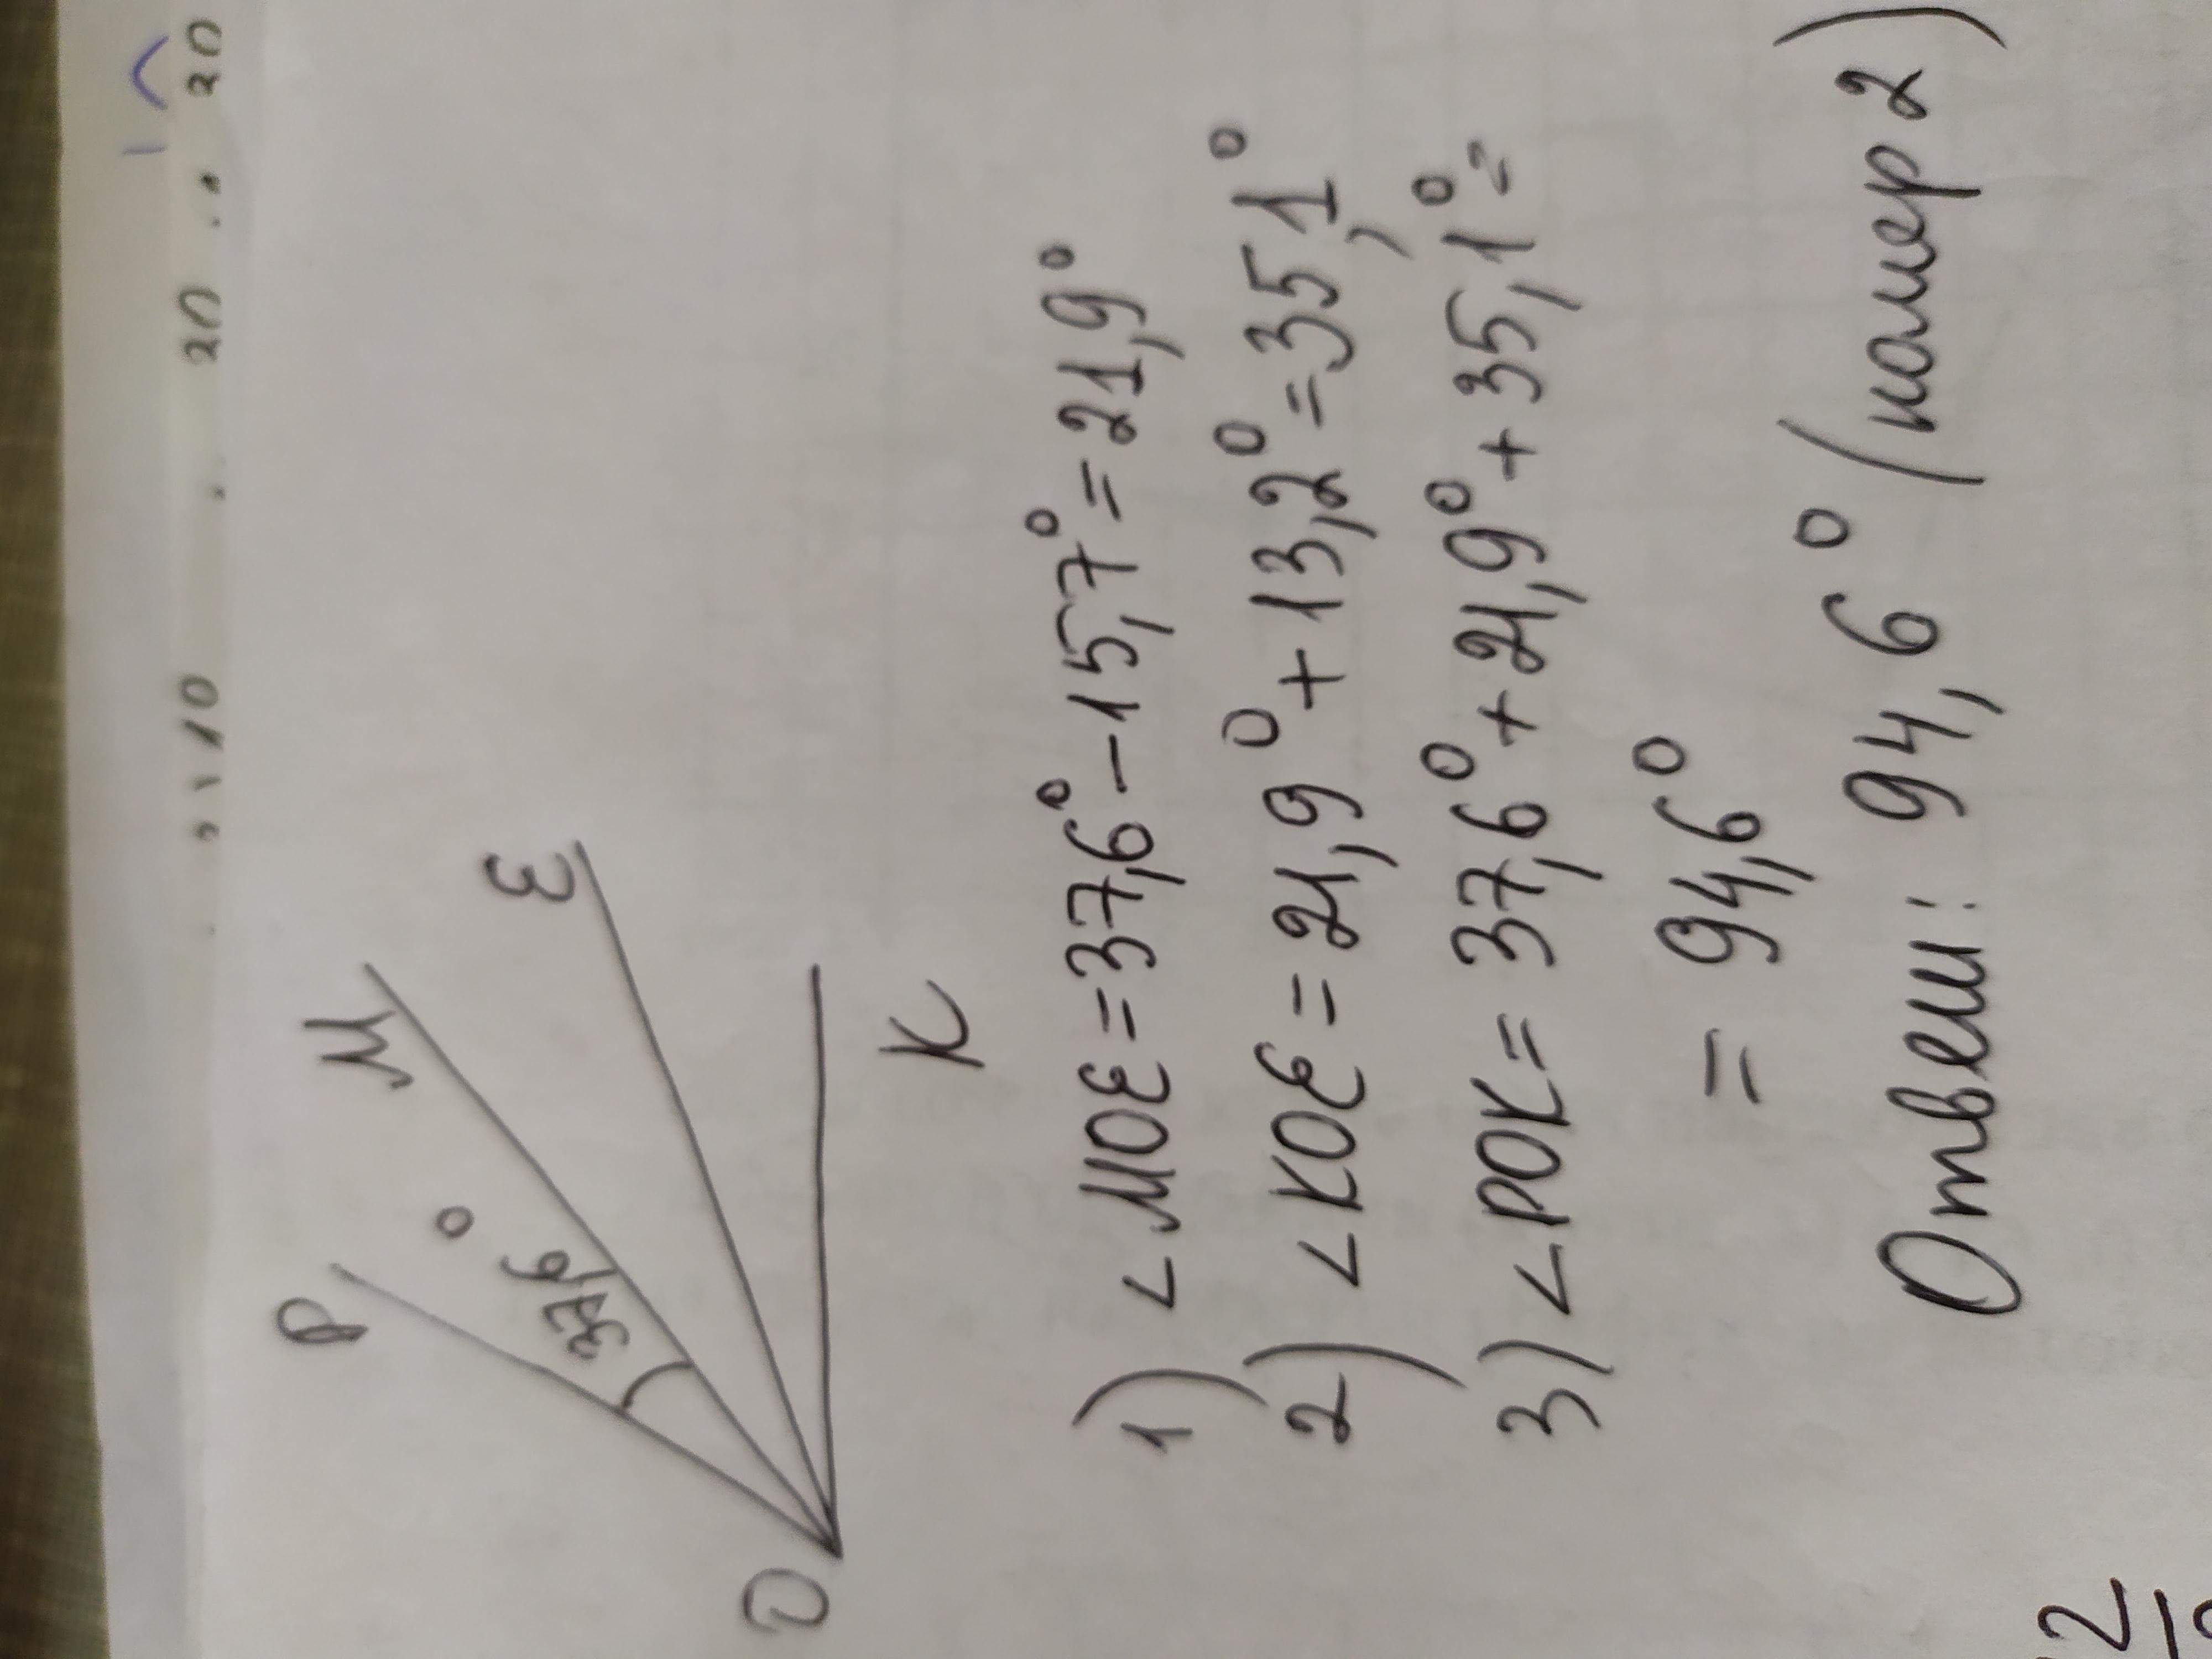 P
M
37,6°
E
O
K
1) ∠MOE = 37,6° - 15,7° = 21,9°
2) ∠KOE = 21,9° + 13,2° = 35,1°
3) ∠POK = 37,6° + 21,9° + 35,1° =
= 94,6°
Ответ: 94,6° (номер 2)
2